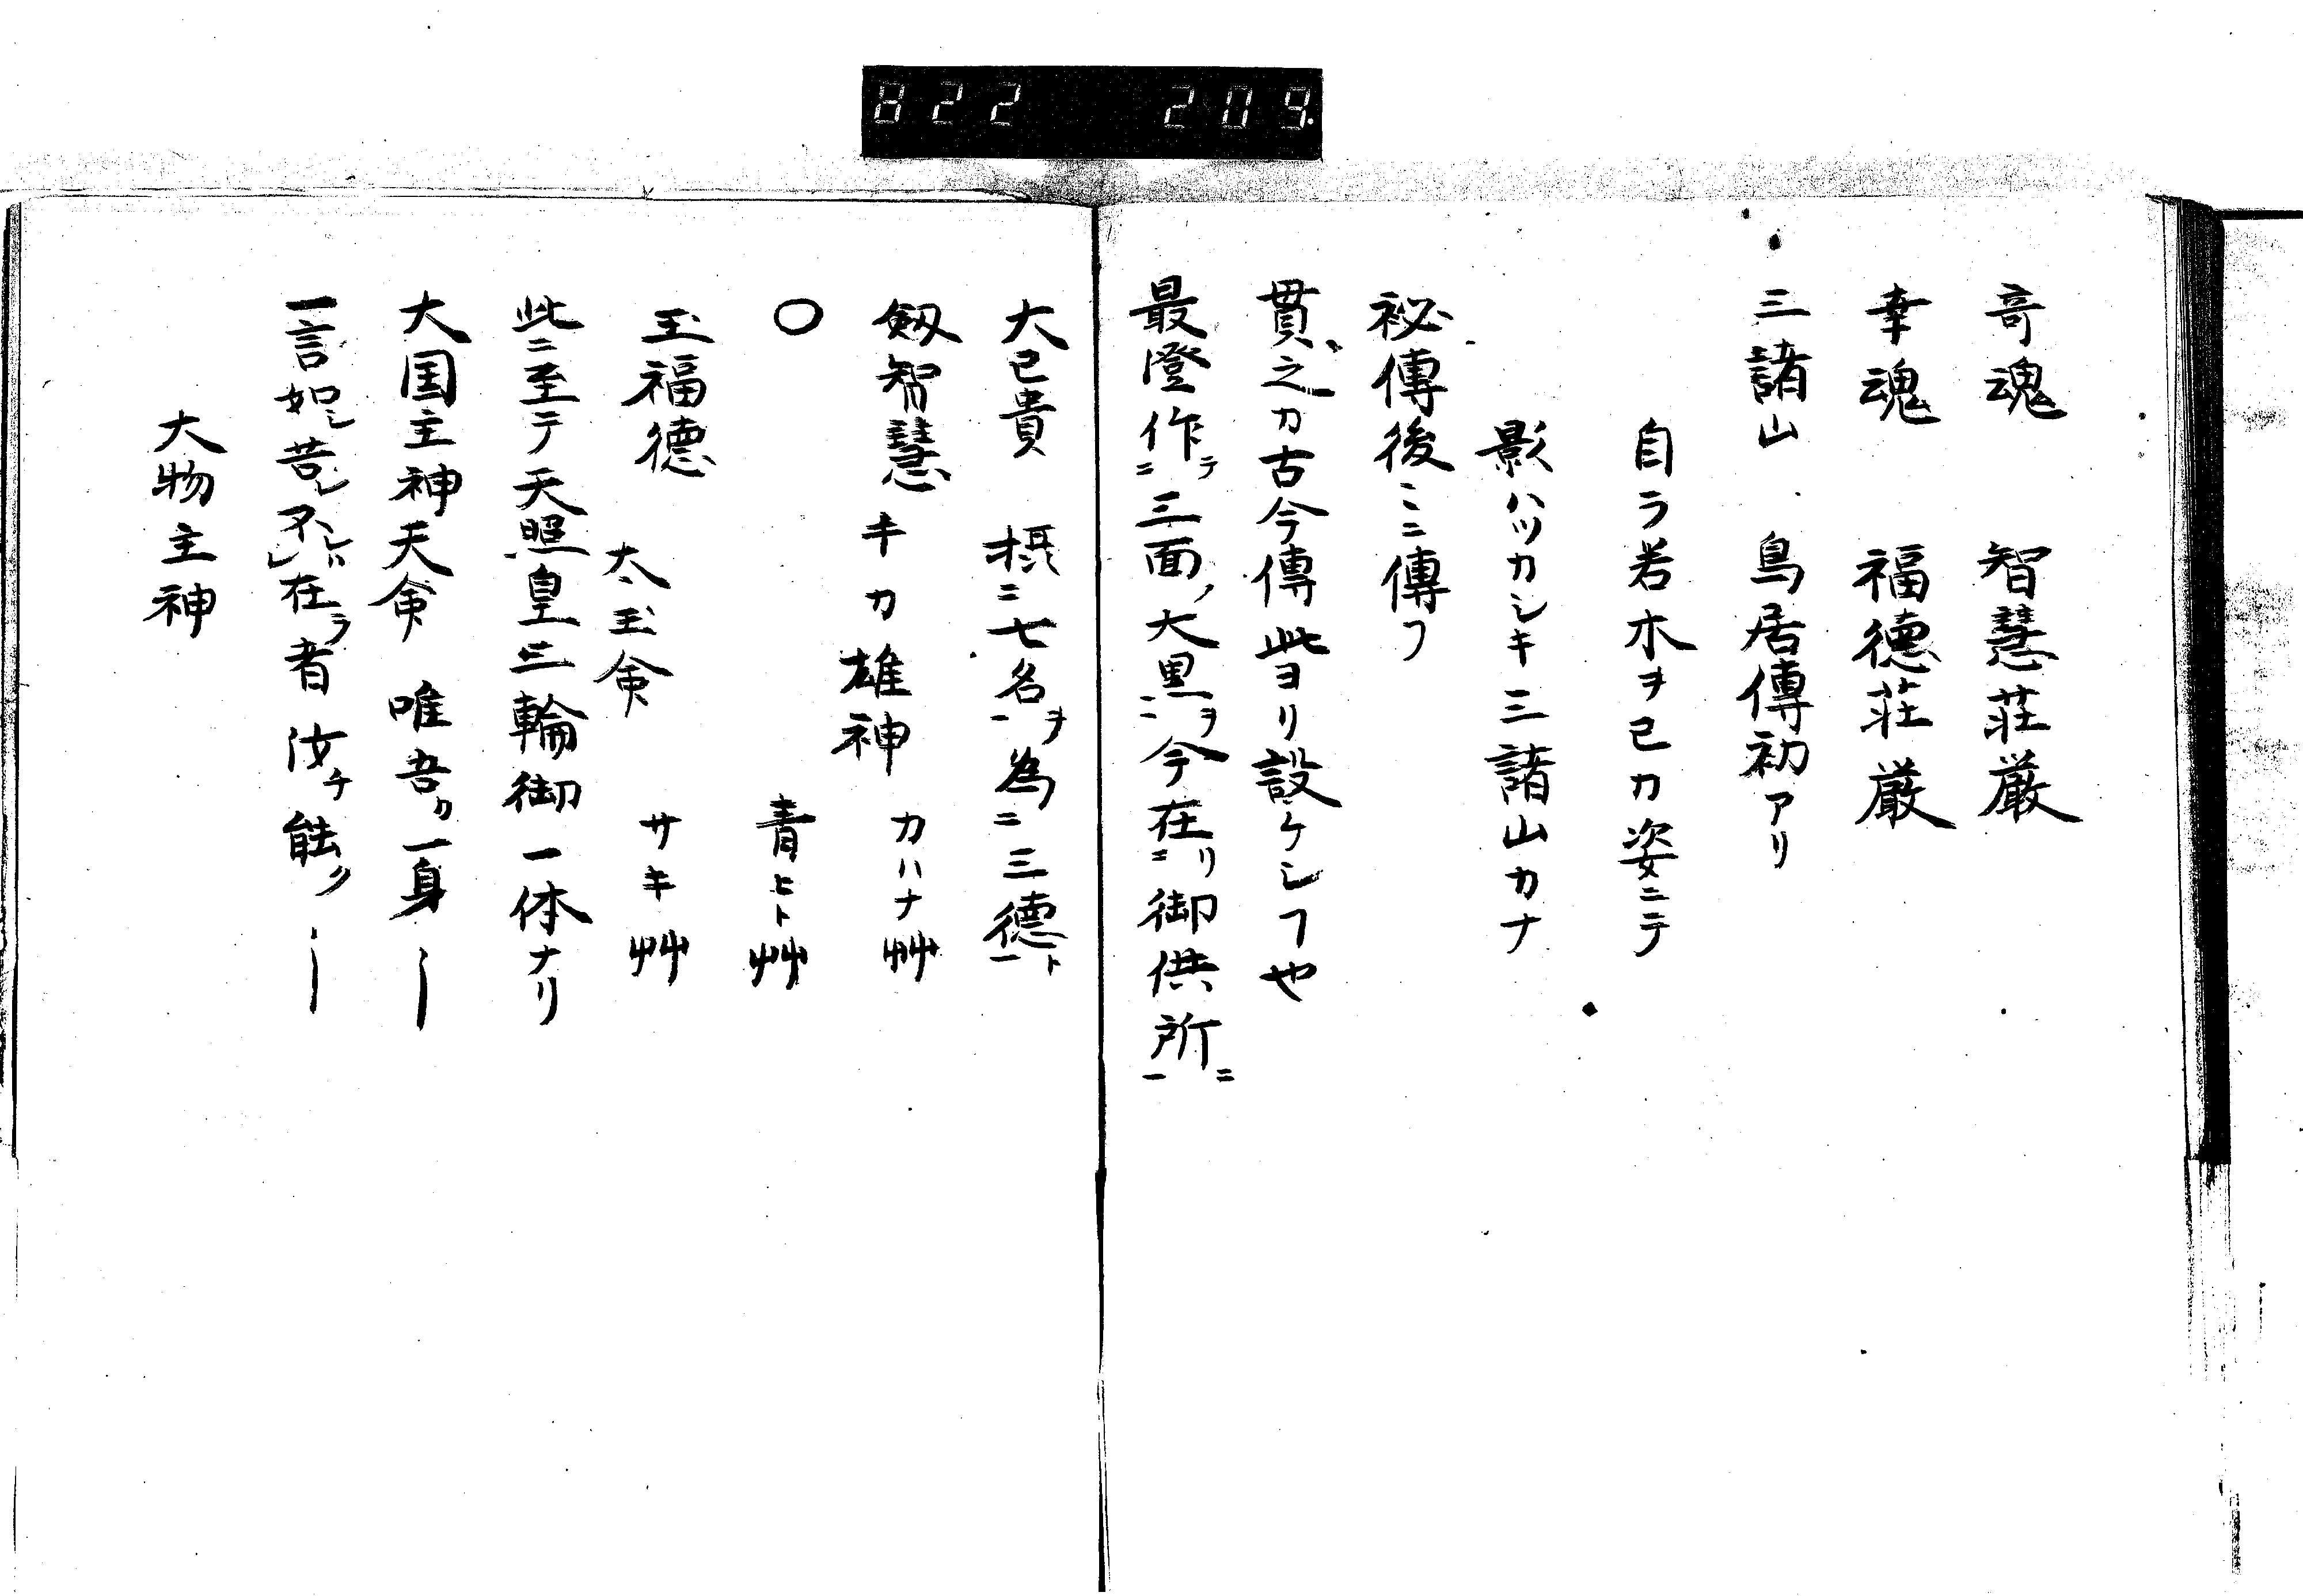 822 209.
奇魂 智慧荘厳
幸魂 福徳荘厳
三諸山 鳥居傳初アリ
自ラ若木ヲ己カ姿ニテ
影ハツカシキ三諸山カナ
祕傳後ミニ傳フ
貫之カ古今傳此ヨリ設ケシフや
最澄作テ二三面ノ大黒ヲ一今在リ二御供所ニ一
大己貴 摂二七名ヲ一為二三徳ト一
劔智慧 キカ雄神 カハナ艸
〇 青ヒト艸
玉福徳 太玉㑒 サキ艸
此ニ至テ天照皇三輪御一体ナリ
大国主神天㑒 唯吾カ一身〡
一言如シ苦レ不レハレ在ラ者汝チ能ク〡
大物主神